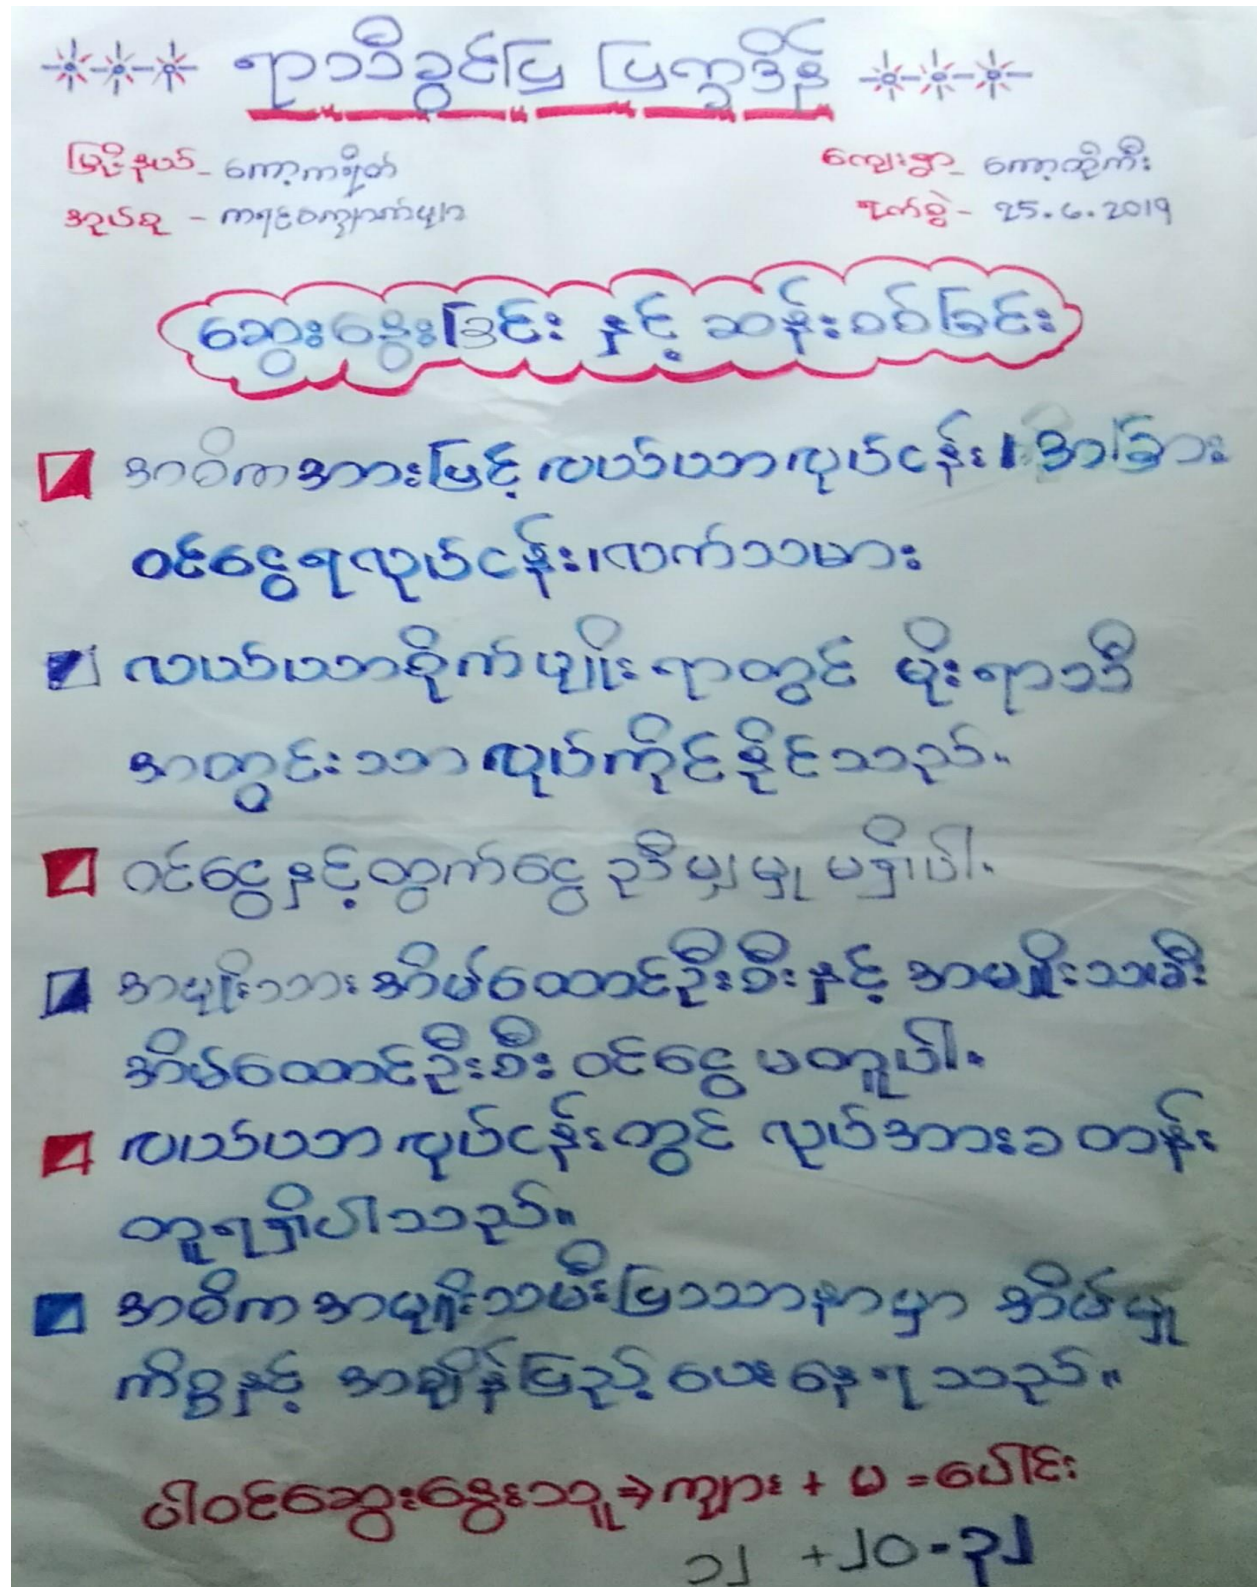 ရာသီခွင်ပြ ပြက္ခဒိန်
မြို့နယ်- ကော့ကရိတ် ကျေးရွာ- ကော့ထိုကီး
အုပ်စု - ရက်စွဲ- 25.6.2019
ဆွေးနွေးခြင်း နှင့် ဆန်းစစ်ခြင်း
အဓိကအားဖြင့် လယ်ယာလုပ်ငန်း၊ အခြား
ဝင်ငွေရလုပ်ငန်း၊လက်သမား
လယ်ယာစိုက်ပျိုးရာတွင် မိုးရာသီ
အတွင်းသာ လုပ်ကိုင်နိုင်သည်။
ဝင်ငွေနှင့်ထွက်ငွေ ညီမျှမှု မရှိပါ။
အမျိုးသား အိမ်ထောင်ဦးစီးနှင့် အမျိုးသမီး
အိမ်ထောင်ဦးစီး ဝင်ငွေ မတူပါ။
လယ်ယာ လုပ်ငန်းတွင် လုပ်အားခ တန်း
တူရရှိပါသည်။
အဓိက အမျိုးသမီးပြဿာနာမှာ အိမ်မှု
ကိစ္စနှင့် အချိန်ပြည့် ပေးနေရသည်။
ပါဝင်ဆွေးနွေးသူ⇒ကျား + မ =ပေါင်း
၁၂ +၂၀=၃၂